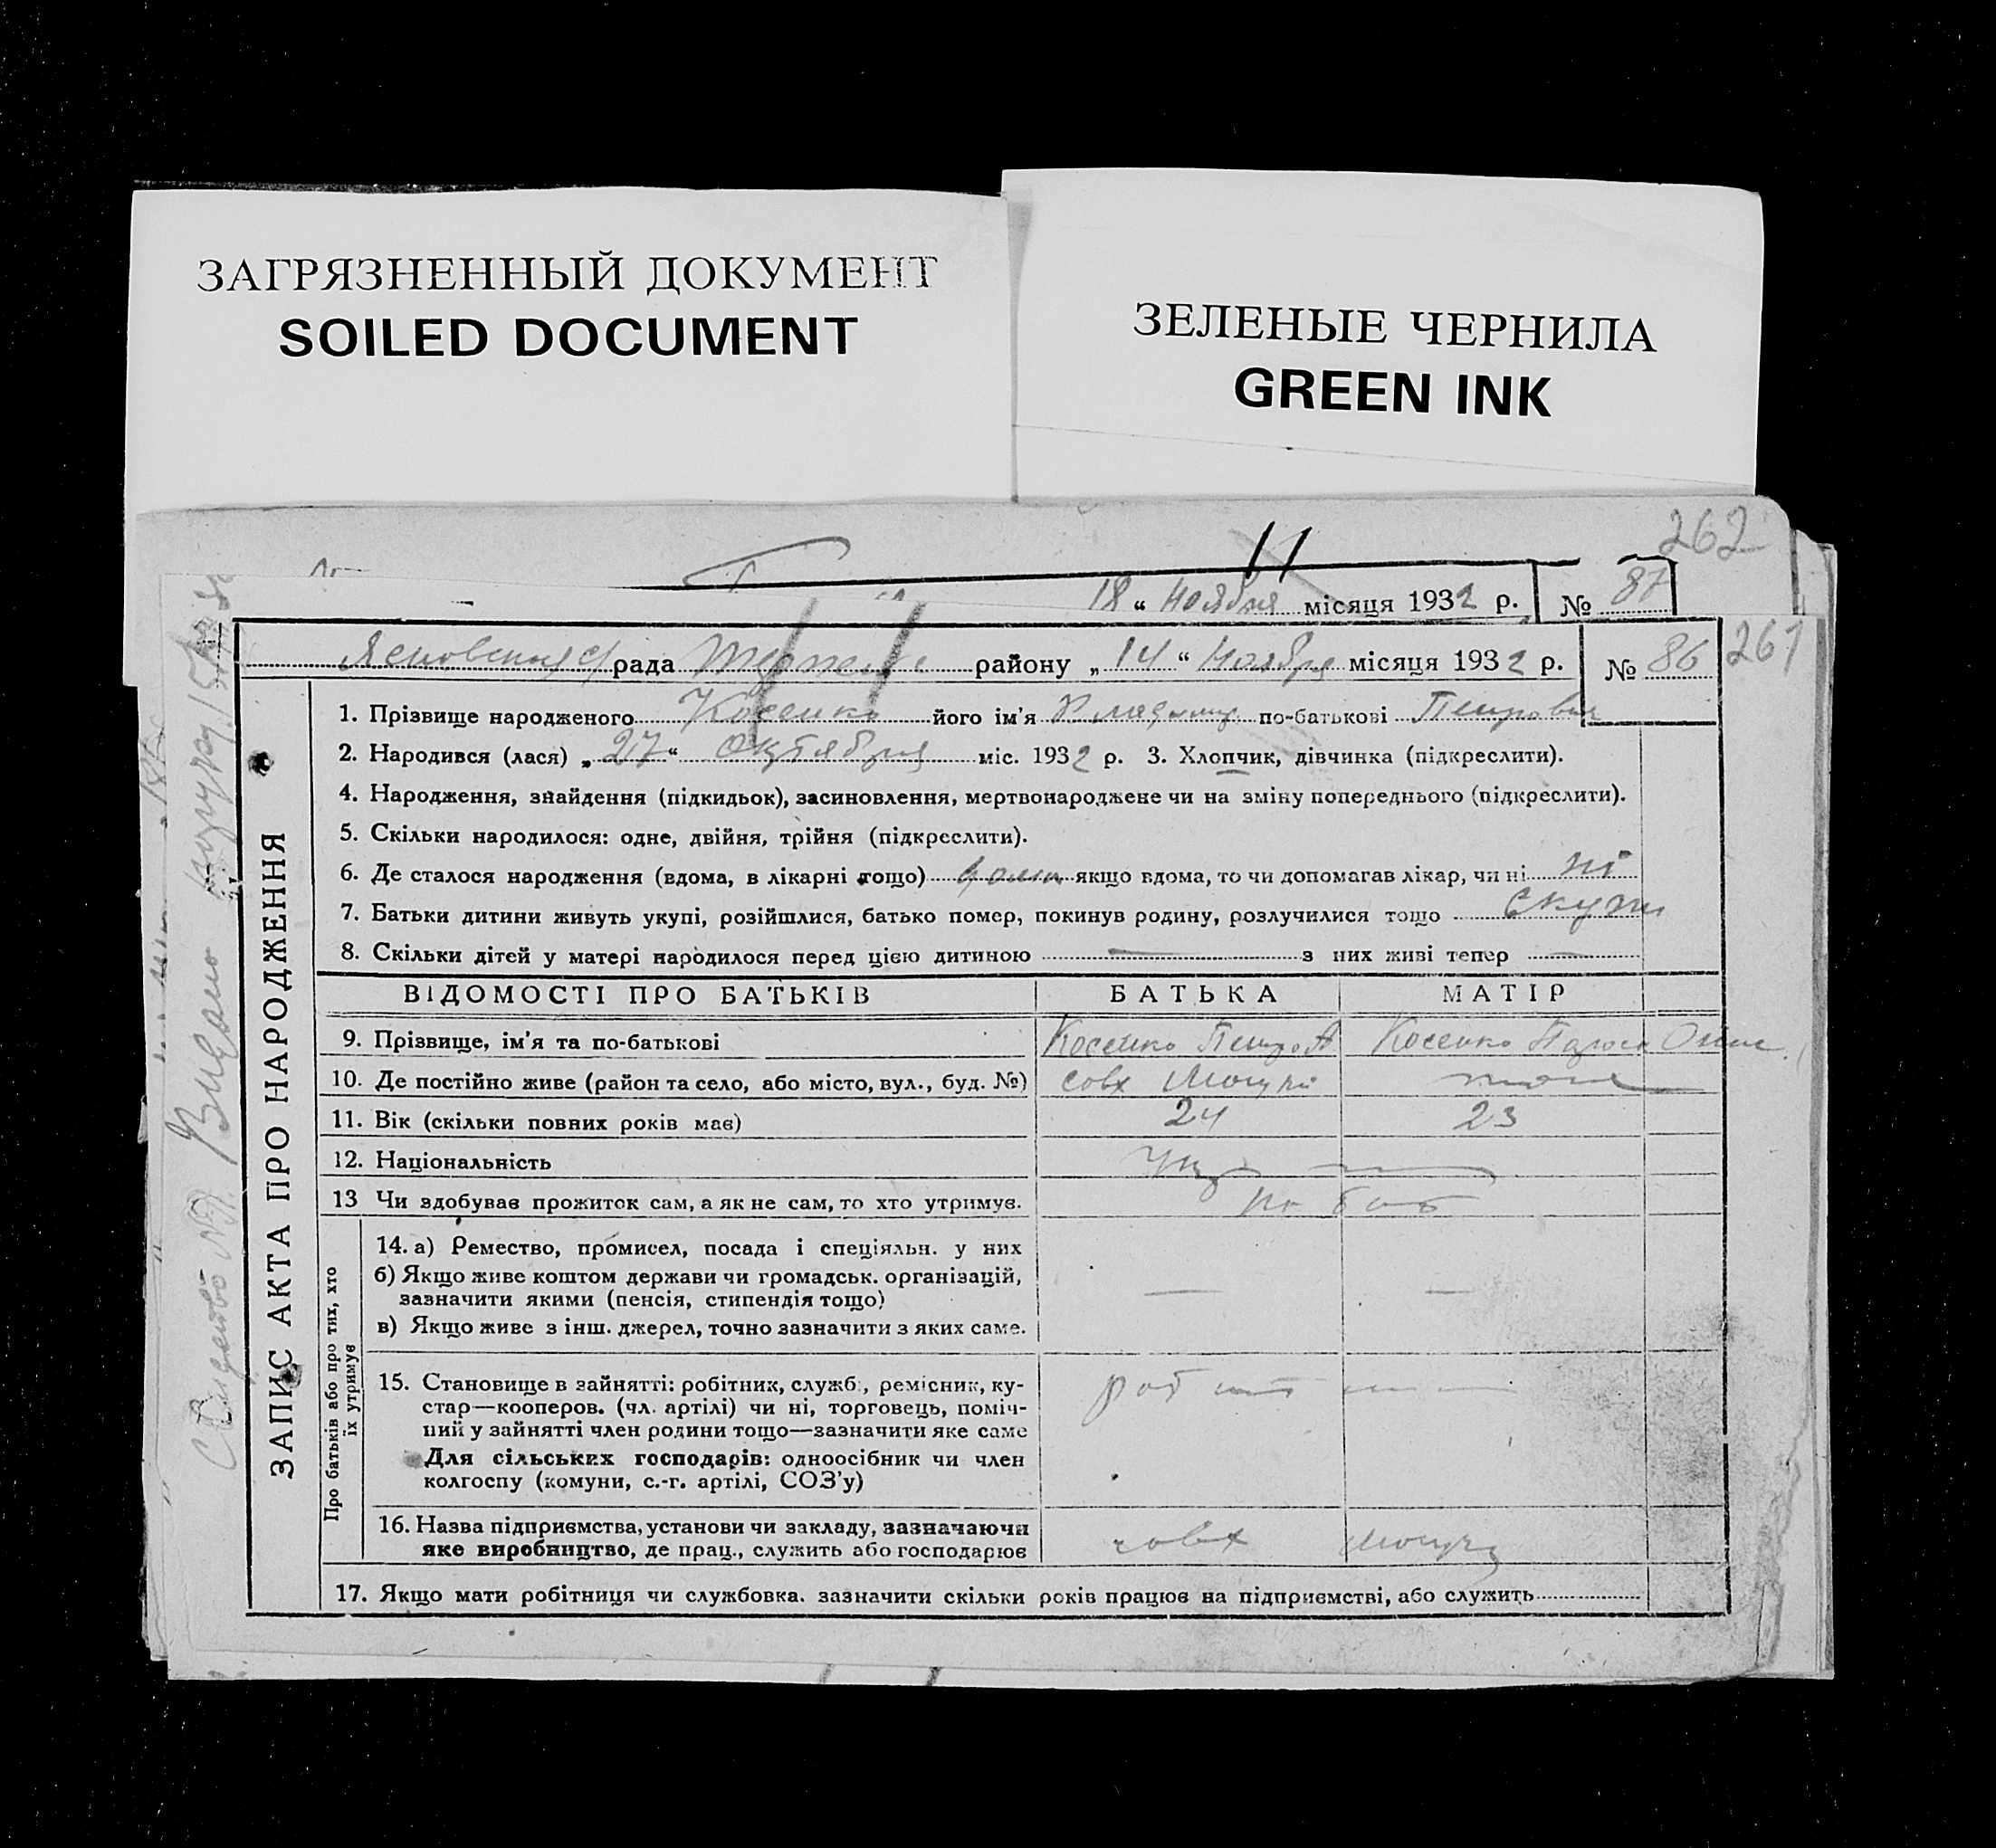 ЗАГРЯЗНЕННЫЙ ДОКУМЕНТ
SOILED DOCUMENT
ЗЕЛЕНЫЕ ЧЕРНИЛА
GREEN INK
262
11
18 “ ноября місяця 1932 р. № 87
рада району „ 14 “ Ноября місяця 1932 р. № 86 261
ЗАПИС АКТА ПРО НАРОДЖЕННЯ
1. Прізвище народженого Косенко його ім'я Владимир по-батькові Петрович
2. Народився (лася) „ 27 “ Октября міс. 1932 р. 3. Хлопчик, дівчинка (підкреслити).
4. Народження, знайдення (підкидьок), засиновлення, мертвонароджене чи на зміну попереднього (підкреслити).
5. Скільки народилося: одне, двійня, трійня (підкреслити).
6. Де сталося народження (вдома, в лікарні тощо) дома якщо вдома, то чи допомагав лікар, чи ні ні
7. Батьки дитини живуть укупі, розійшлися, батько помер, покинув родину, розлучилися тощо
8. Скільки дітей у матері народилося перед цією дитиною — з них живі тепер —
ВІДОМОСТІ ПРО БАТЬКІВ БАТЬКА МАТІР
9. Прізвище, ім'я та по-батькові Косенко Петро А. Косенко
10. Де постійно живе (район та село, або місто, вул., буд. №) совх
11. Вік (скільки повних років має) 24 23
12. Національність Укр
13 Чи здобував прожиток сам, а як не сам, то хто утримує.
Про батьків або про тих, хто
їх утримує
14. а) Ремество, промисел, посада і спеціяльн. у них
б) Якщо живе коштом держави чи громадськ. організацій,
зазначити якими (пенсія, стипендія тощо) — —
в) Якщо живе з інш. джерел, точно зазначити з яких саме.
15. Становище в зайнятті: робітник, служб., ремісник, ку-
стар—кооперов. (чл. артілі) чи ні, торговець, поміч-
ний у зайнятті член родини тощо—зазначити яке саме
Для сільських господарів: одноосібник чи член
колгоспу (комуни, с.-г. артілі, СОЗ'у)
16. Назва підприємства, установи чи закладу, зазначаючи
яке виробництво, де прац., служить або господарює совх
17. Якщо мати робітниця чи службовка. зазначити скільки років працює на підприємстві, або служить